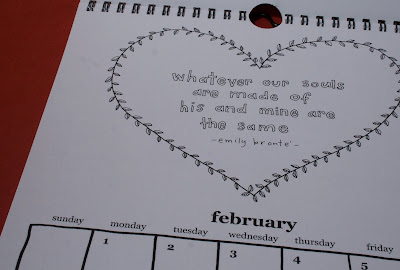 whatever our souls
are made of
his and mine are
the same
-emily bronte'-
february
sunday monday tuesday wednesday thursday friday
1 2 3 4 5